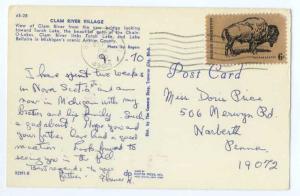 68-28
CLAM RIVER VILLAGE
View of Clam River from the new bridge looking
toward Torch Lake, the beautiful part of the Chain
O-Lakes. Clam River links Torch Lake and Lake
Bellaire in Michigan's scenic Antrim County.
Photo by
9-1-70
I have spent two weeks in
Nova Scotia and am
now in Michigan with my
brother and his family. Such
a gad about! Hope you and
your father have had a good
vacation. Look forward to
seeing you in the fall.
Best regards to your
father.
52291-B
Post Card
Miss Doris Price
506 Merwyn Rd.
Narberth
Penna.
19072
6¢